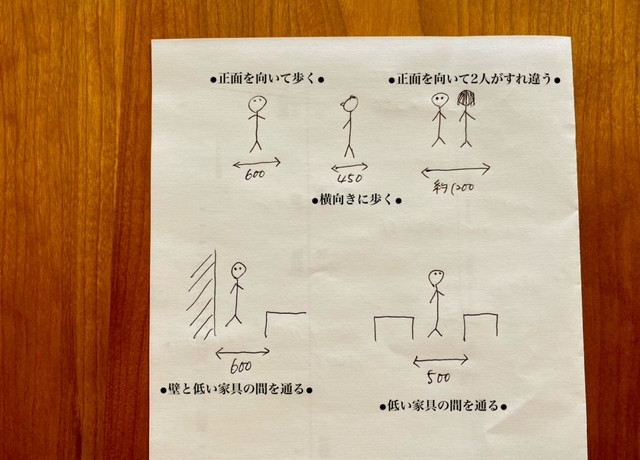 ●正面を向いて歩く●
●正面を向いて2人がすれ違う●
600
450
約1200
●横向きに歩く●
600
500
●壁と低い家具の間を通る●
●低い家具の間を通る●